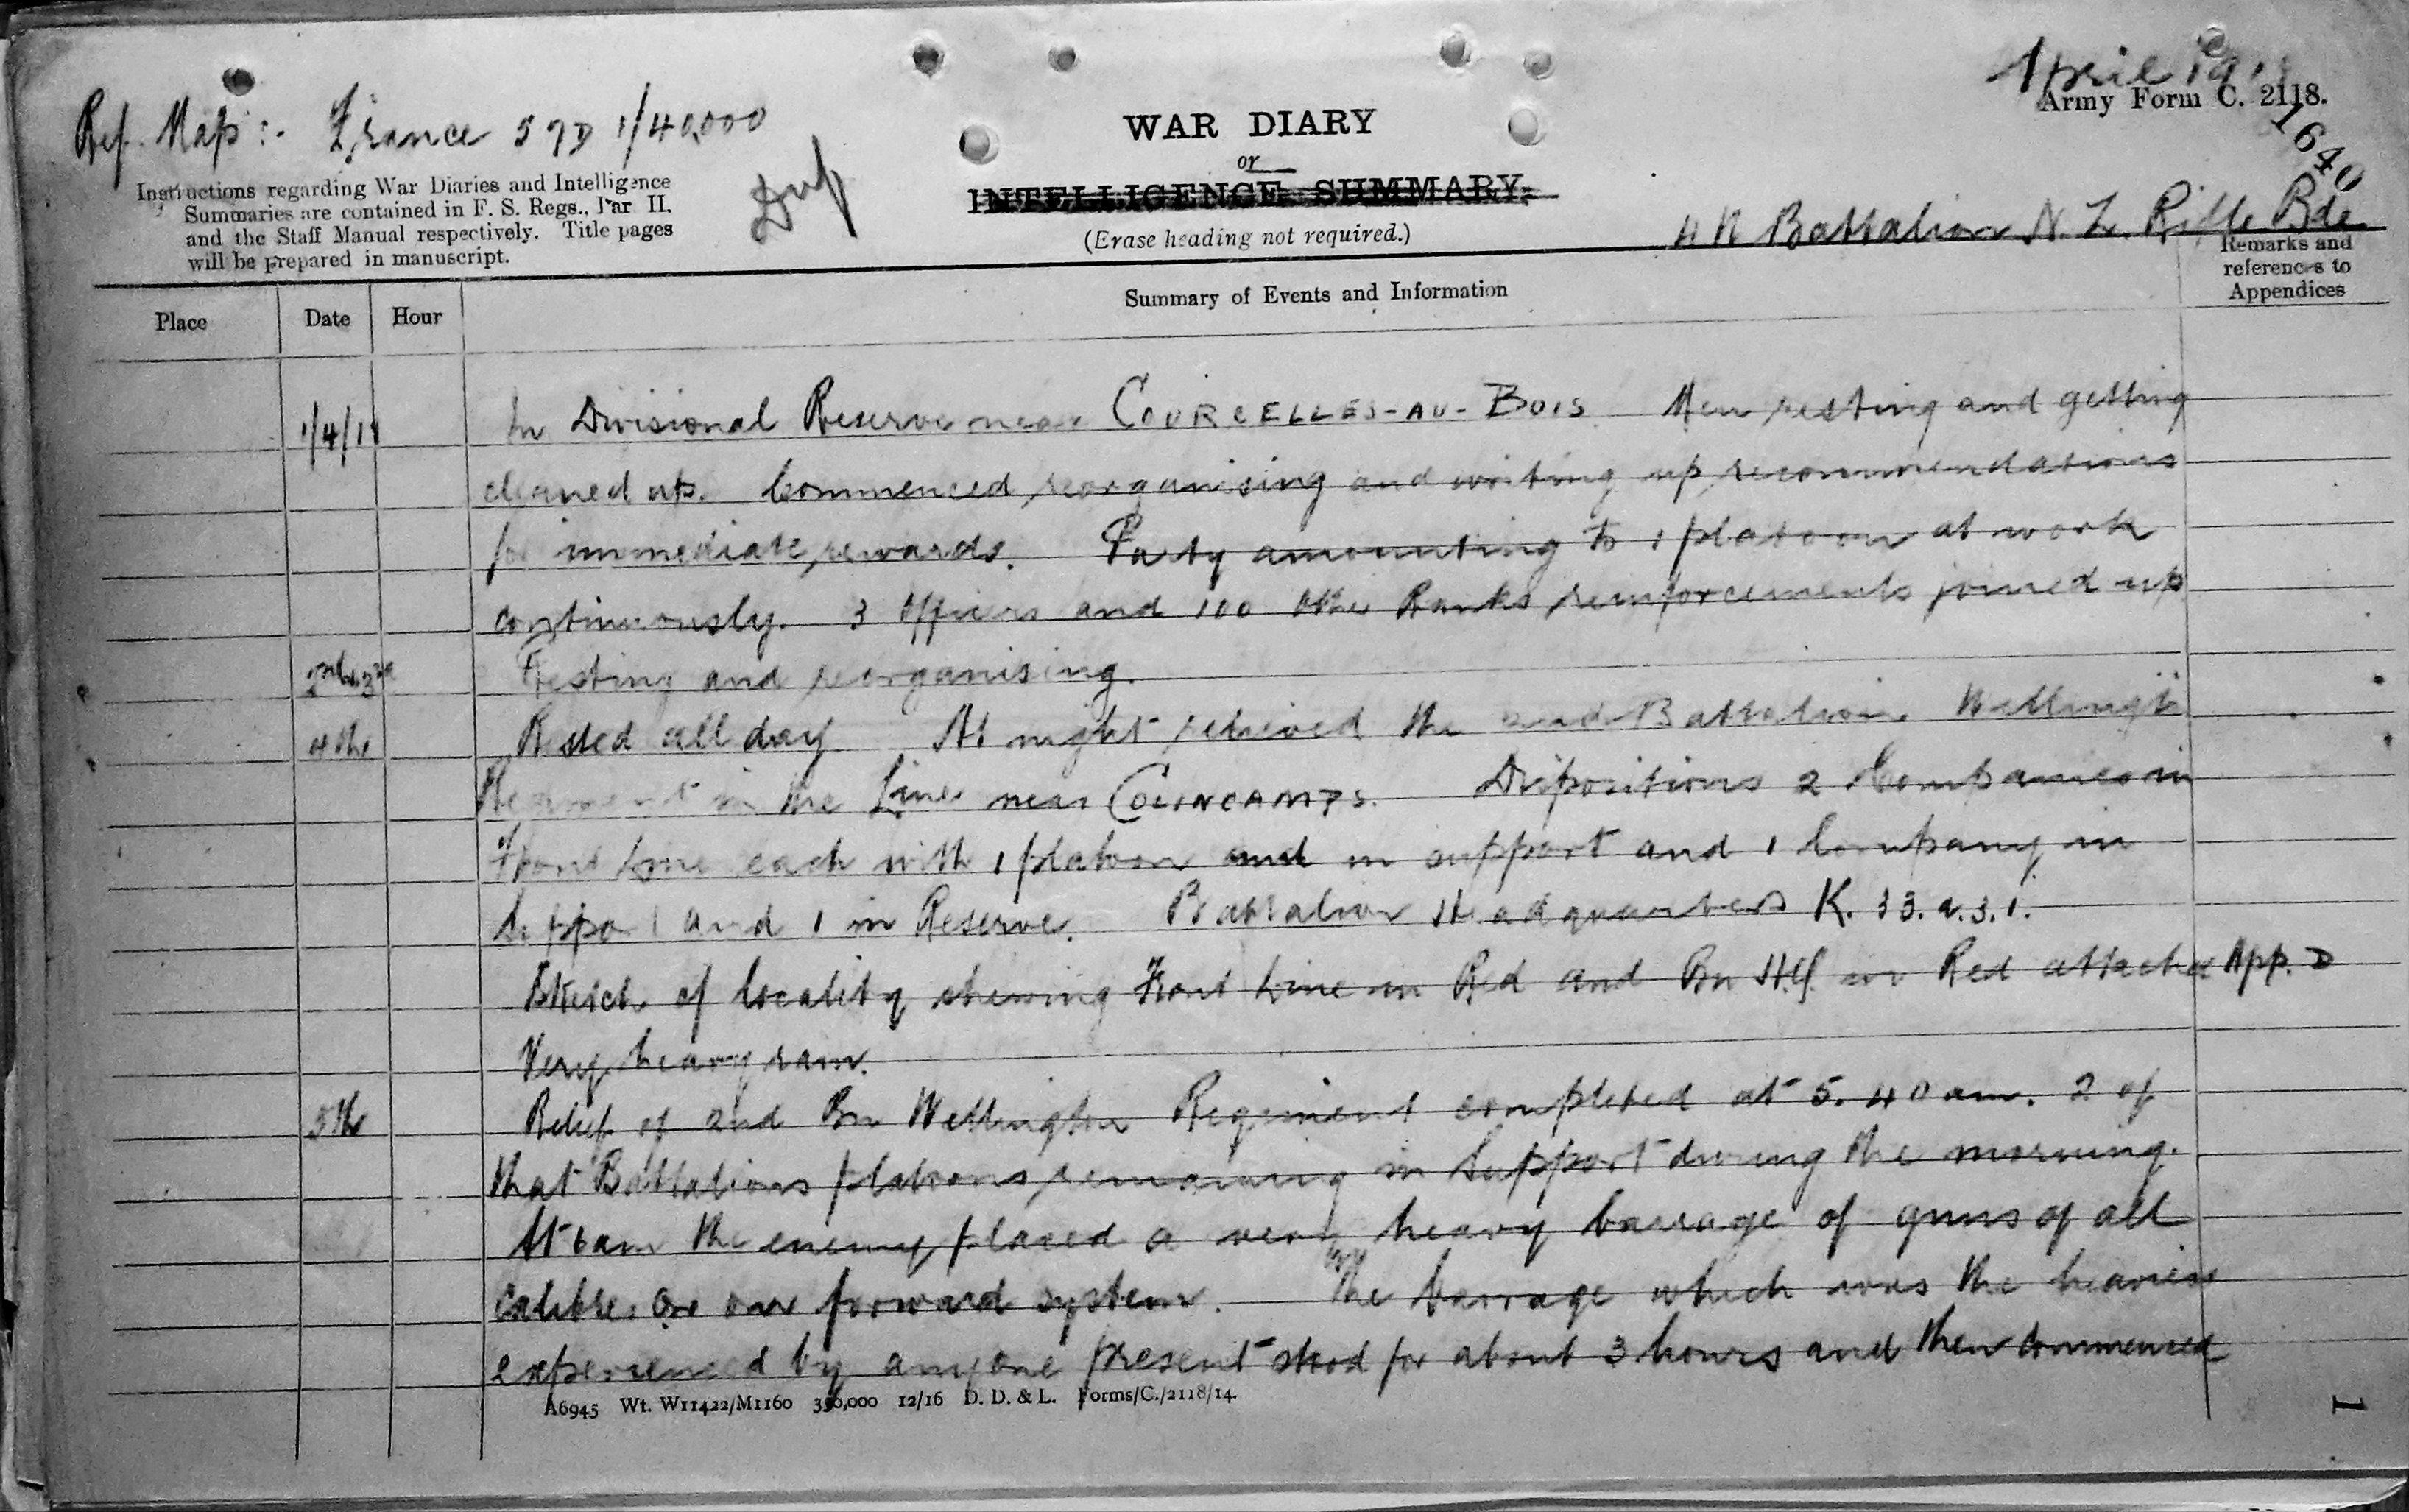 April 191
Army Form C. 2118.
1640
Ref. Map :- France 57D 1/40,000
Dup
WAR DIARY
or
INTELLIGENCE SUMMARY.
(Erase heading not required.)
Instructions regarding War Diaries and Intelligence
Summaries are contained in F. S. Regs., Par II.
and the Staff Manual respectively. Title pages
will be prepared in manuscript.
4th Battalion N. Z. Rifle Bde
Place Date Hour Summary of Events and Information Remarks and
references to
Appendices
1/4/18 In Divisional Reserve near COURCELLES-AU-BOIS Men resting and getting
cleaned up. Commenced reorganising and writing up recommendations
for immediate rewards. Party amounting to 1 platoon at work
continuously. 3 Officers and 100 Other Ranks reinforcements joined up
2nd & 3rd Resting and reorganising.
4th Rested all day. At night relieved the 2nd Battalion Wellington
Regiment in the Line near COLINCAMPS. Dispositions 2 Companies in
Front Line each with 1 platoon and in support and 1 Company in
Support and 1 in Reserve. Battalion Headquarters K. 33. a. 3. 1.
Sketch of locality shewing Front Line in Red and Bn H.Q. in Red attached App. D
Very heavy rain.
5th Relief of 2nd Bn Wellington Regiment completed at 5.40 am. 2 of
that Battalions platoons remaining in Support during the morning.
At 6 am the enemy placed a very heavy barrage of guns of all
calibres on our forward system. The barrage which was the heaviest
experienced by anyone present stood for about 3 hours and then commenced
A6945 Wt. W11422/M1160 350,000 12/16 D. D. & L. Forms/C./2118/14.
1